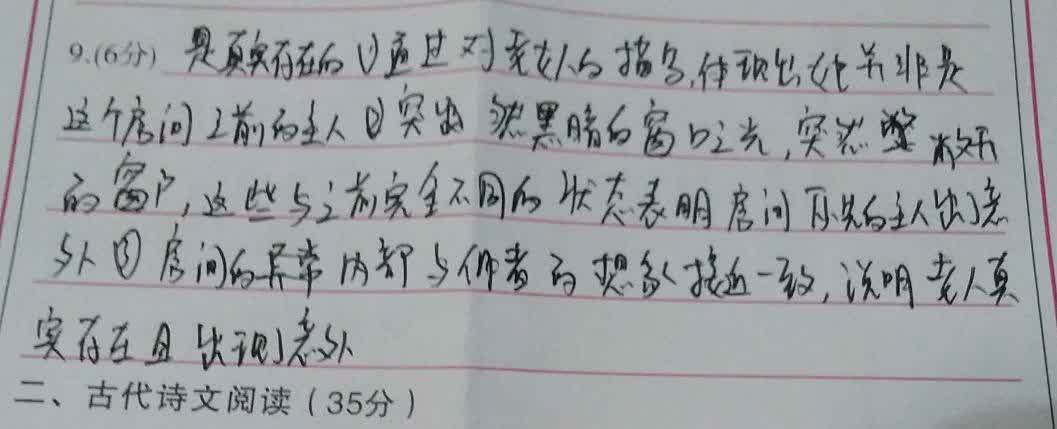 9.(6分) 是真实存在的 ①通过对老人的描写,体现出他并非是
这个房间之前的主人 ②突出 然黑暗的窗口之光,突然 敞开
的窗户,这些与之前完全不同的状态表明房间原先的主人出意
外 ③房间的异常内部与作者的想象接近一致,说明老人真
实存在且出现意外
二、古代诗文阅读(35分)